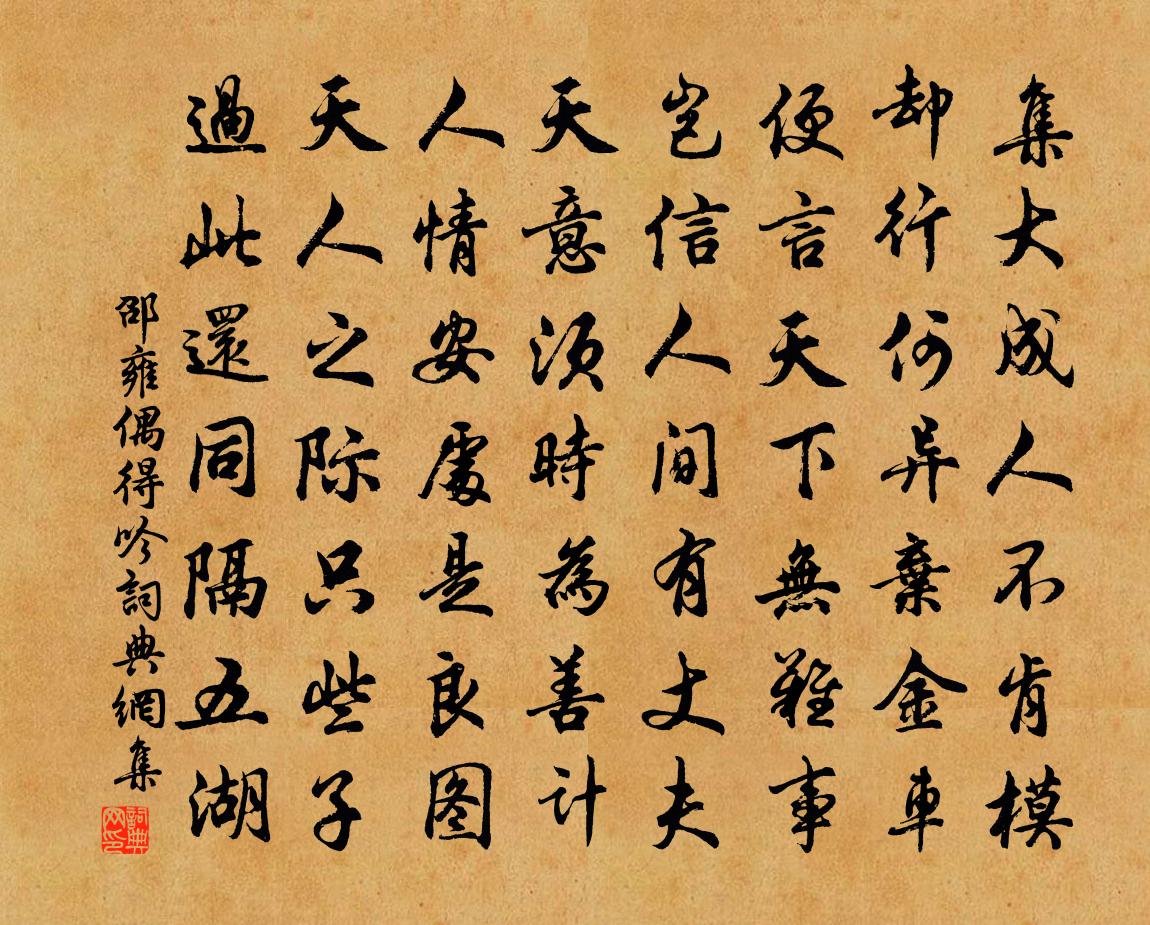 集大成人不肯模
却行何异棄金車
便言天下無難事
岂信人间有丈夫
天意须時為善计
人情安處是良图
天人之际只些子
過此還同隔五湖
邵雍偶得吟詞典網集
詞典网印